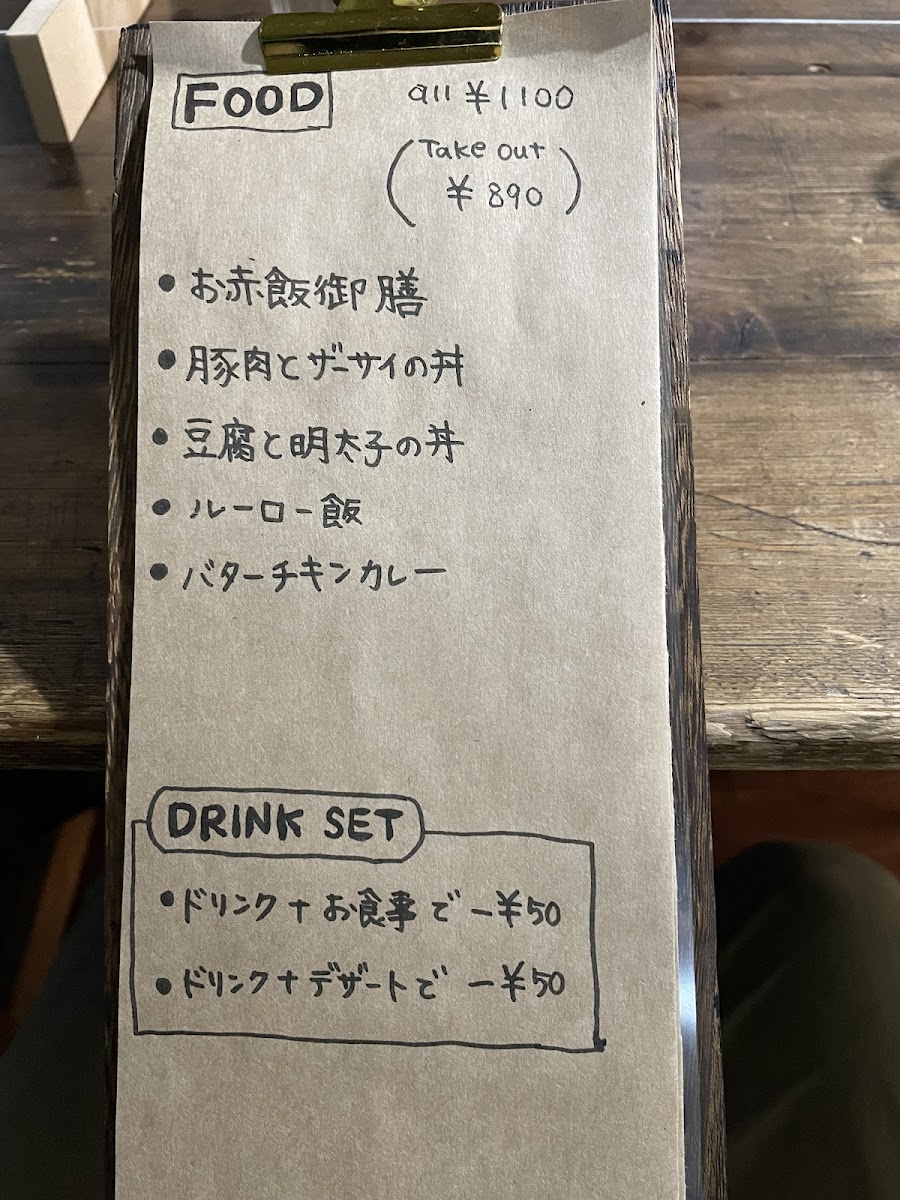 FOOD all ¥1100
(Take out
¥890)
• お赤飯御膳
• 豚肉とザーサイの丼
• 豆腐と明太子の丼
• ルーロー飯
• バターチキンカレー
DRINK SET
• ドリンク+お食事で -¥50
• ドリンク+デザートで -¥50